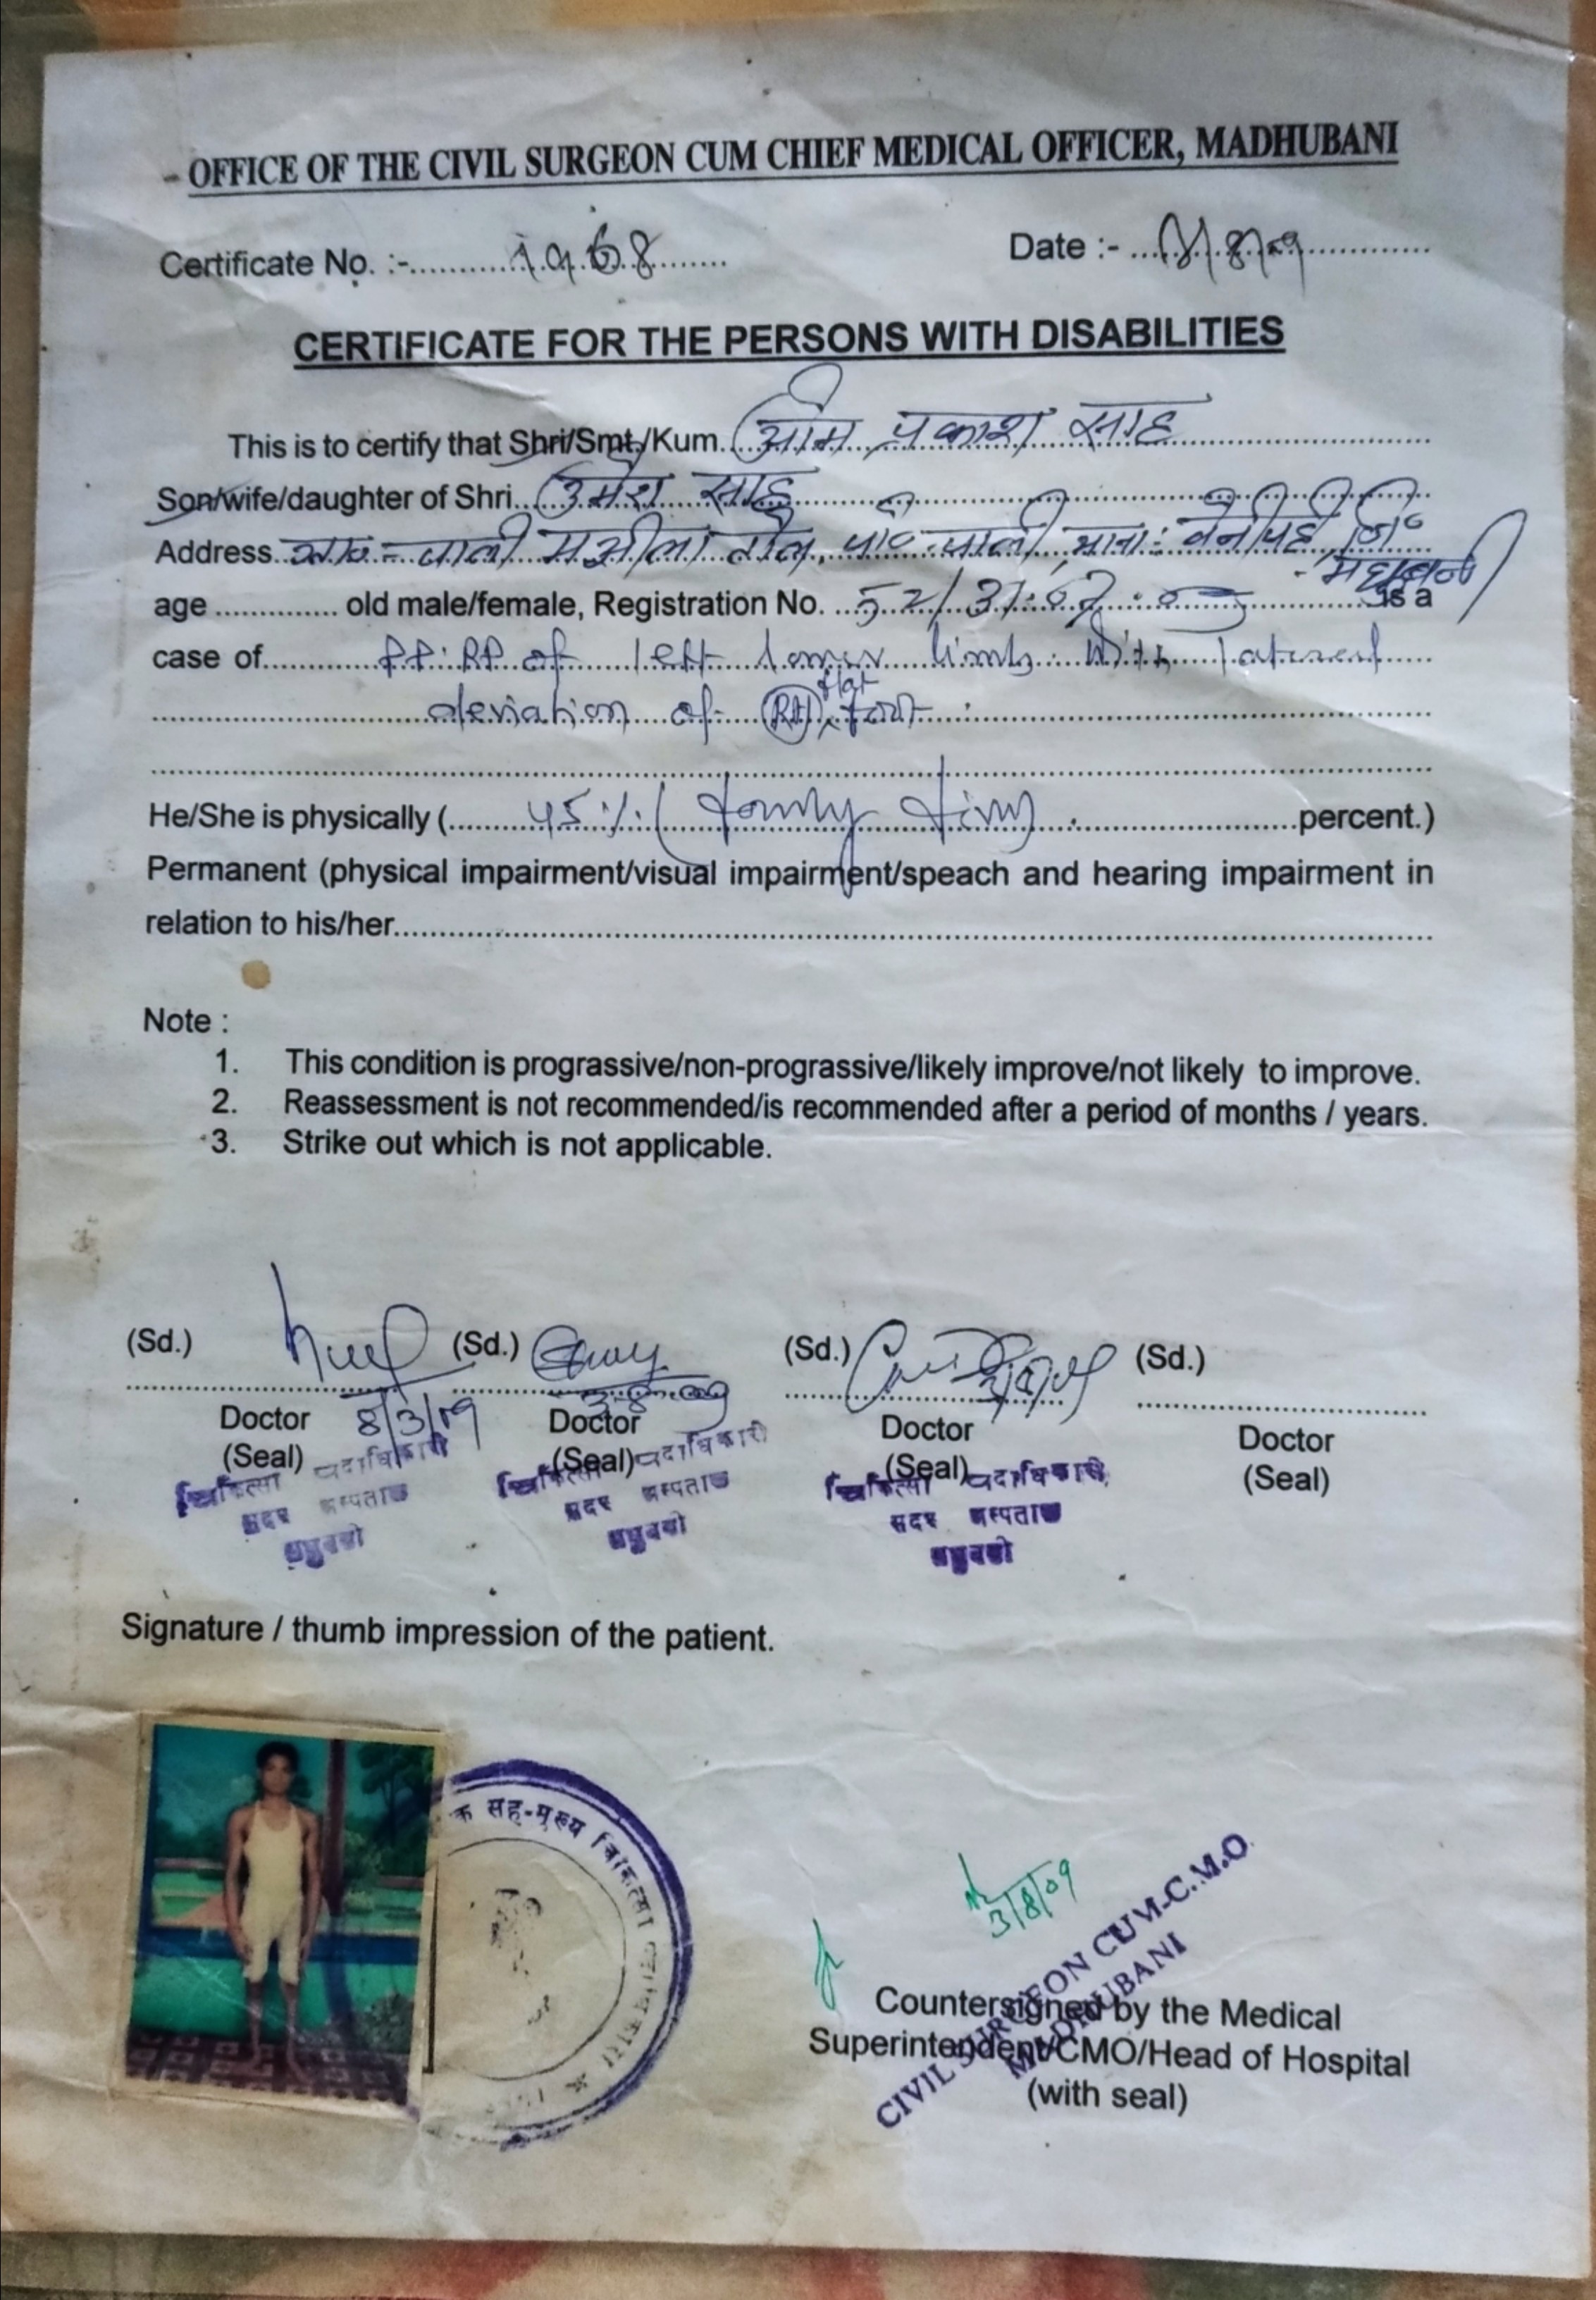 OFFICE OF THE CIVIL SURGEON CUM CHIEF MEDICAL OFFICER, MADHUBANI
Certificate No. :-..........1968........ Date :- .....8/09..............
CERTIFICATE FOR THE PERSONS WITH DISABILITIES
This is to certify that Shri/Smt./Kum. ओम प्रकाश साह
Son/wife/daughter of Shri... उमेश साह
Address पाली टोल, पो० पाली, थाना: बेनीपट्टी, जि०
मधुबनी
age .............. old male/female, Registration No. is a
case of............ PPRP of left lower limb with lateral
flat
deviation of Rt foot
He/She is physically (.......... 45% ( percent.)
Permanent (physical impairment/visual impairment/speach and hearing impairment in
relation to his/her
Note :
1. This condition is prograssive/non-prograssive/likely improve/not likely to improve.
2. Reassessment is not recommended/is recommended after a period of months / years.
3. Strike out which is not applicable.
(Sd.) (Sd.) (Sd.) (Sd.)
3-8-09
Doctor 8/3/09 Doctor Doctor Doctor
(Seal) (Seal) (Seal) (Seal)
चिकित्सा पदाधिकारी चिकित्सा पदाधिकारी चिकित्सा पदाधिकारी
सदर अस्पताल सदर अस्पताल सदर अस्पताल
मधुबनी मधुबनी मधुबनी
Signature / thumb impression of the patient.
क सह-मुख्य चिकित्सा
3/8/09
CIVIL SURGEON CUM-C.M.O.
MADHUBANI
Countersigned by the Medical
Superintendent/CMO/Head of Hospital
(with seal)